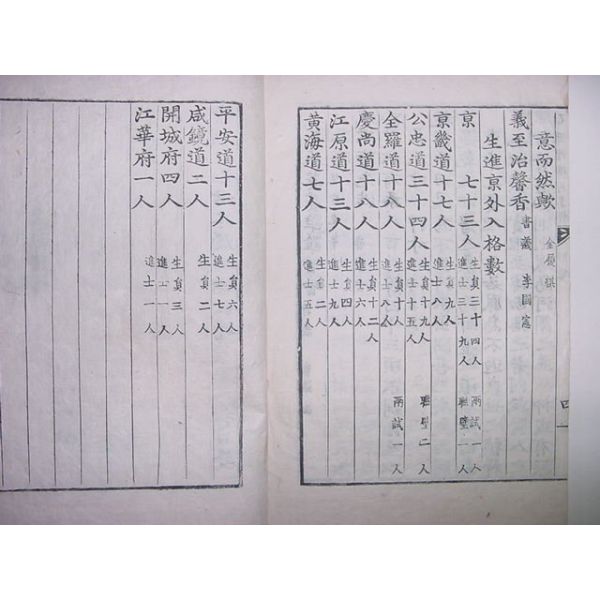 四一
意而然歟 金 祺
義至治馨香 書義 李國憲
生進京外入格數
京 七十三人 生貟三十四人 進士三十九人 兩試一人 聯璧一人
京畿道十七人 生貟九人 進士八人
公忠道三十四人 生貟十九人 進士十五人 聯璧二人
全羅道十八人 生貟十人 進士八人 兩試一人
慶尚道十八人 生貟十二人 進士六人
江原道十三人 生貟四人 進士九人
黃海道七人 生貟二人 進士五人
平安道十三人 生貟六人 進士七人
咸鏡道二人 生貟二人
開城府四人 生貟三人 進士一人
江華府一人 進士一人